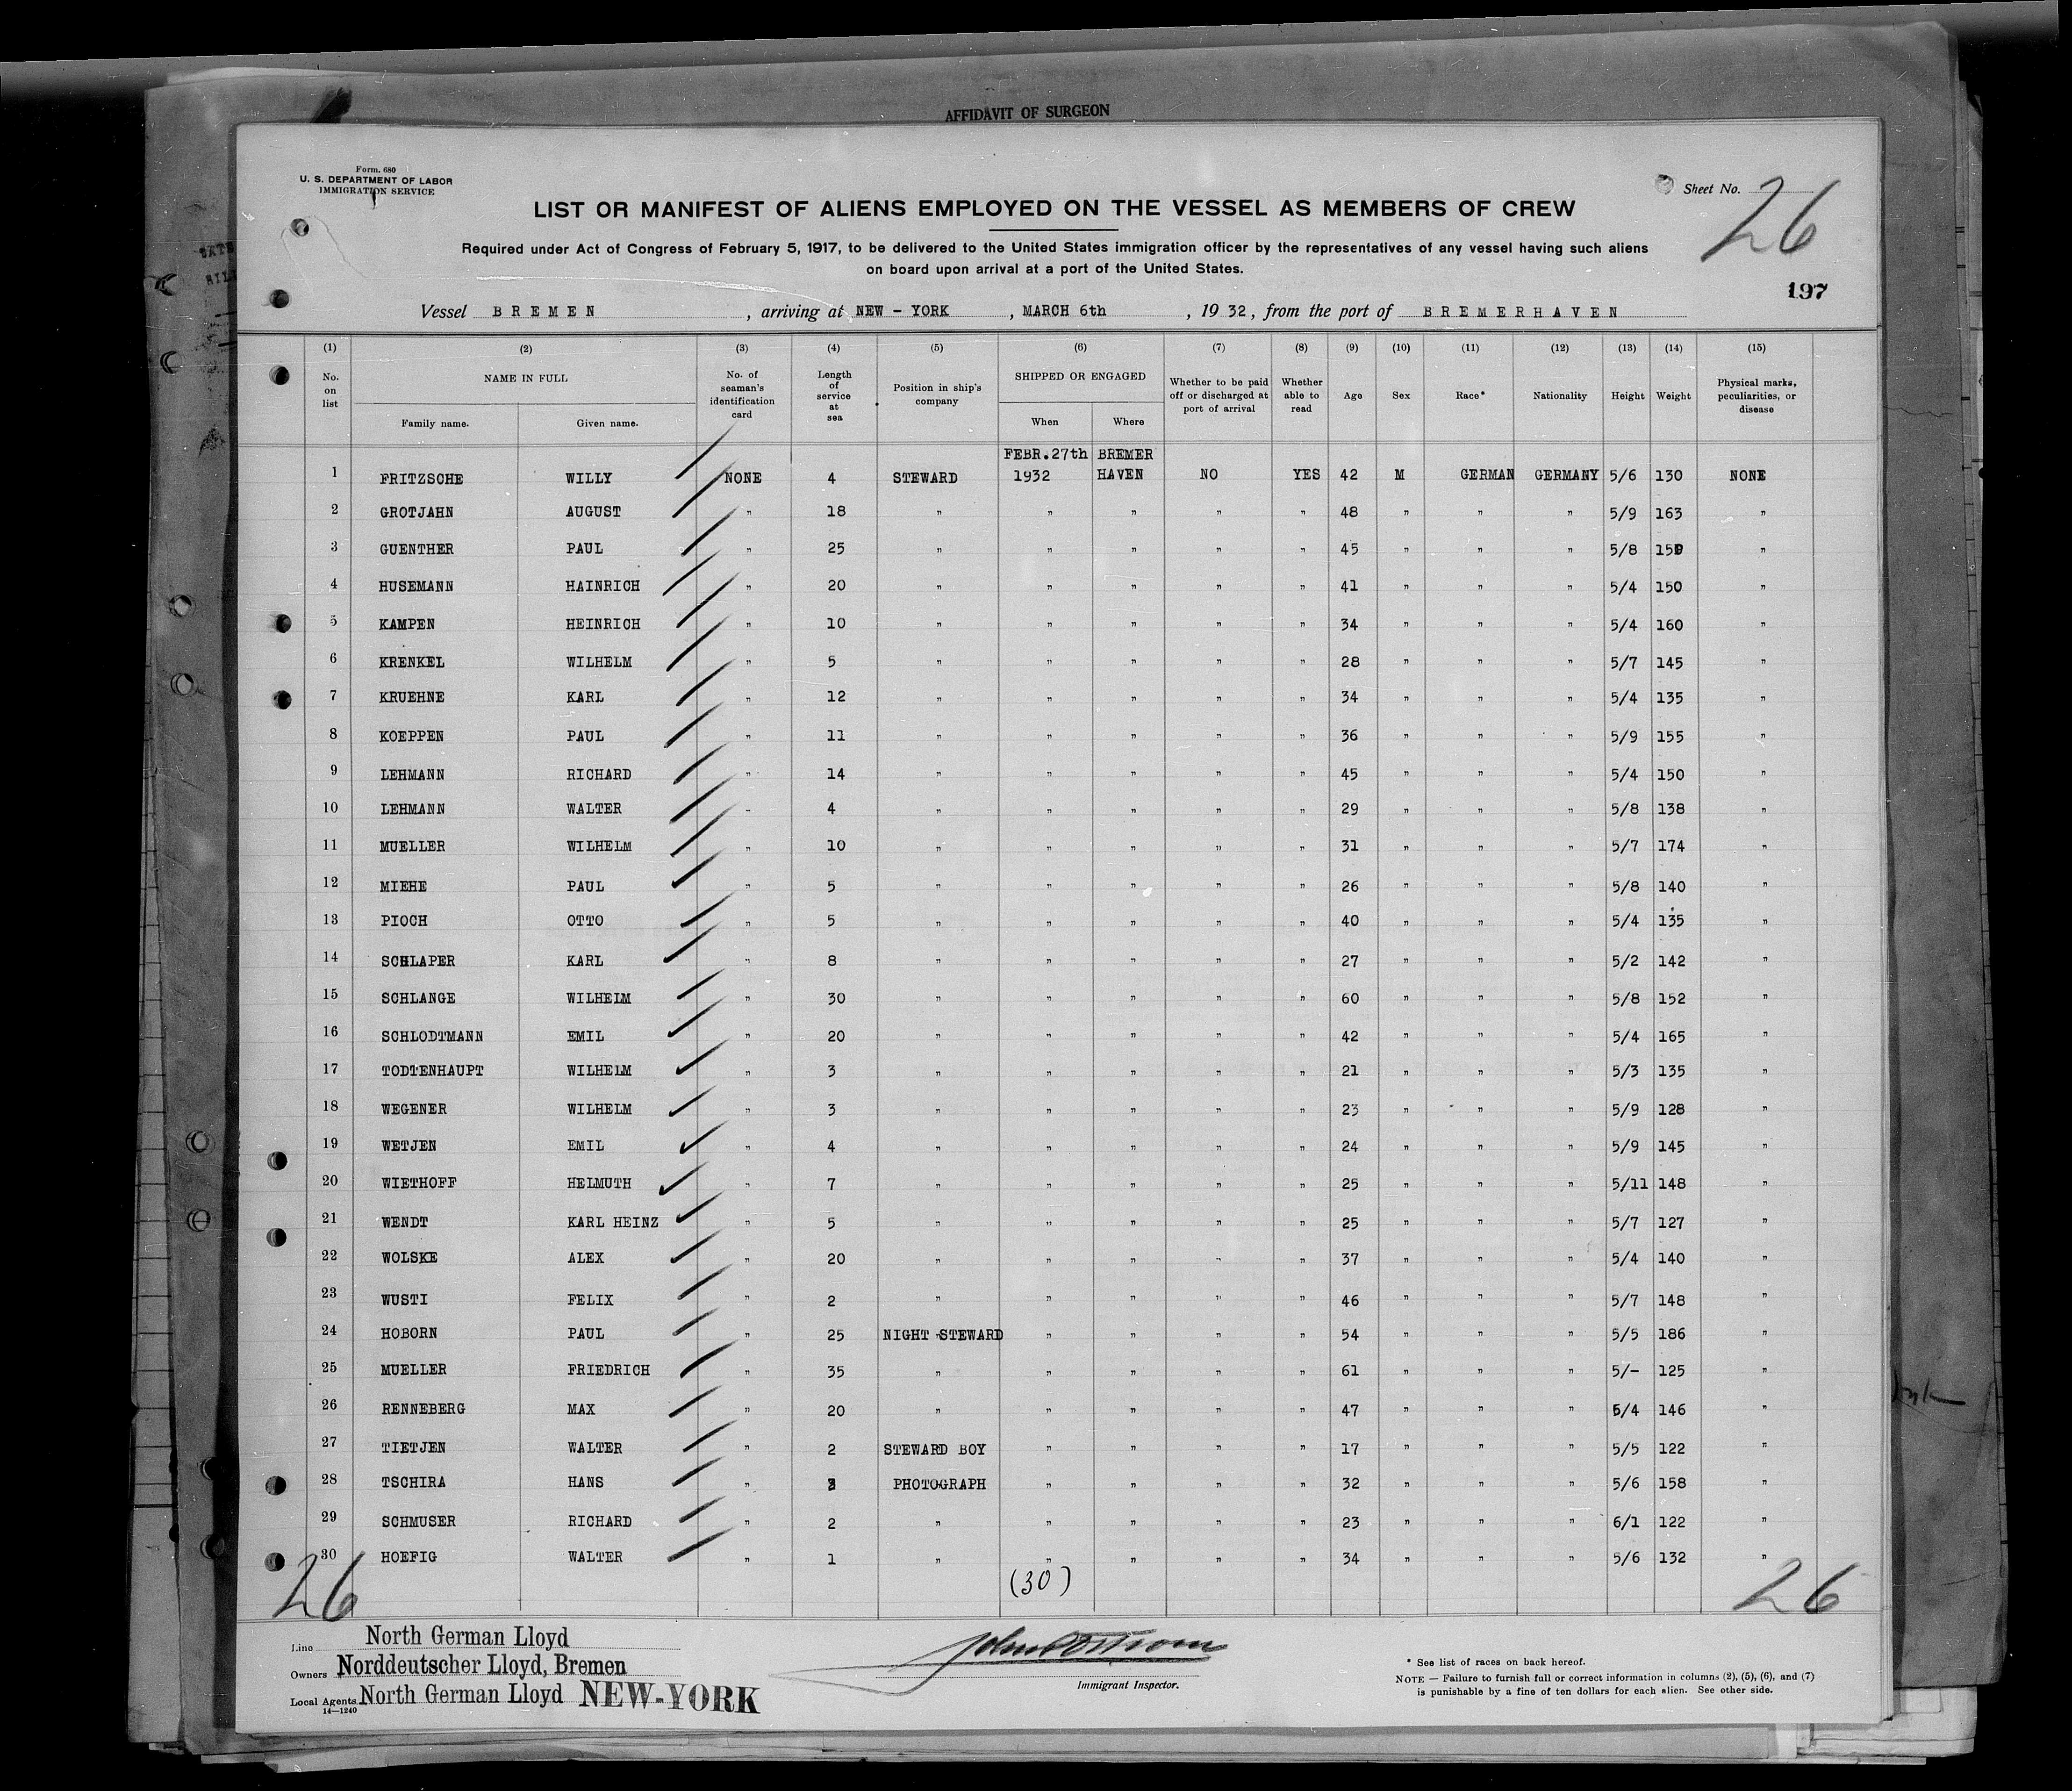 AFFIDAVIT OF SURGEON
Form. 680
U. S. DEPARTMENT OF LABOR
IMMIGRATION SERVICE
Sheet No. 26
LIST OR MANIFEST OF ALIENS EMPLOYED ON THE VESSEL AS MEMBERS OF CREW
Required under Act of Congress of February 5, 1917, to be delivered to the United States immigration officer by the representatives of any vessel having such aliens
on board upon arrival at a port of the United States.
197
Vessel BREMEN, arriving at NEW - YORK, MARCH 6th, 1932, from the port of BREMERHAVEN
(1) (2) (3) (4) (5) (6) (7) (8) (9) (10) (11) (12) (13) (14) (15)
No. on list NAME IN FULL Family name. Given name. No. of seaman's identification card Length of service at sea Position in ship's company SHIPPED OR ENGAGED When Where Whether to be paid off or discharged at port of arrival Whether able to read Age Sex Race* Nationality Height Weight Physical marks, peculiarities, or disease
FEBR.27th BREMER
1 FRITZSCHE WILLY NONE 4 STEWARD 1932 HAVEN NO YES 42 M GERMAN GERMANY 5/6 130 NONE
2 GROTJAHN AUGUST " 18 " " " " " 48 " " " 5/9 163 "
3 GUENTHER PAUL " 25 " " " " " 45 " " " 5/8 "
4 HUSEMANN HAINRICH " 20 " " " " " 41 " " " 5/4 150 "
5 KAMPEN HEINRICH " 10 " " " " " 34 " " " 5/4 160 "
6 KRENKEL WILHELM " 5 " " " " " 28 " " " 5/7 145 "
7 KRUEHNE KARL " 12 " " " " " 34 " " " 5/4 135 "
8 KOEPPEN PAUL " 11 " " " " " 36 " " " 5/9 155 "
9 LEHMANN RICHARD " 14 " " " " " 45 " " " 5/4 150 "
10 LEHMANN WALTER " 4 " " " " " 29 " " " 5/8 138 "
11 MUELLER WILHELM " 10 " " " " " 31 " " " 5/7 174 "
12 MIEHE PAUL " 5 " " " " " 26 " " " 5/8 140 "
13 PIOCH OTTO " 5 " " " " " 40 " " " 5/4 135 "
14 SCHLAPER KARL " 8 " " " " " 27 " " " 5/2 142 "
15 SCHLANGE WILHELM " 30 " " " " " 60 " " " 5/8 152 "
16 SCHLODTMANN EMIL " 20 " " " " " 42 " " " 5/4 165 "
17 TODTENHAUPT WILHELM " 3 " " " " " 21 " " " 5/3 135 "
18 WEGENER WILHELM " 3 " " " " " 23 " " " 5/9 128 "
19 WETJEN EMIL " 4 " " " " " 24 " " " 5/9 145 "
20 WIETHOFF HELMUTH " 7 " " " " " 25 " " " 5/11 148 "
21 WENDT KARL HEINZ " 5 " " " " " 25 " " " 5/7 127 "
22 WOLSKE ALEX " 20 " " " " " 37 " " " 5/4 140 "
23 WUSTI FELIX " 2 " " " " " 46 " " " 5/7 148 "
24 HOBORN PAUL " 25 NIGHT STEWARD " " " " 54 " " " 5/5 186 "
25 MUELLER FRIEDRICH " 35 " " " " " 61 " " " 5/- 125 "
26 RENNEBERG MAX " 20 " " " " " 47 " " " 5/4 146 "
27 TIETJEN WALTER " 2 STEWARD BOY " " " " 17 " " " 5/5 122 "
28 TSCHIRA HANS " PHOTOGRAPH " " " " 32 " " " 5/6 158 "
29 SCHMUSER RICHARD " 2 " " " " " 23 " " " 6/1 122 "
30 HOEFIG WALTER " 1 " " " " " 34 " " " 5/6 132 "
26 (30) 26
Line North German Lloyd
Owners Norddeutscher Lloyd, Bremen
Local Agents North German Lloyd NEW-YORK
14—1240
Immigrant Inspector.
* See list of races on back hereof.
NOTE — Failure to furnish full or correct information in columns (2), (5), (6), and (7)
is punishable by a fine of ten dollars for each alien. See other side.